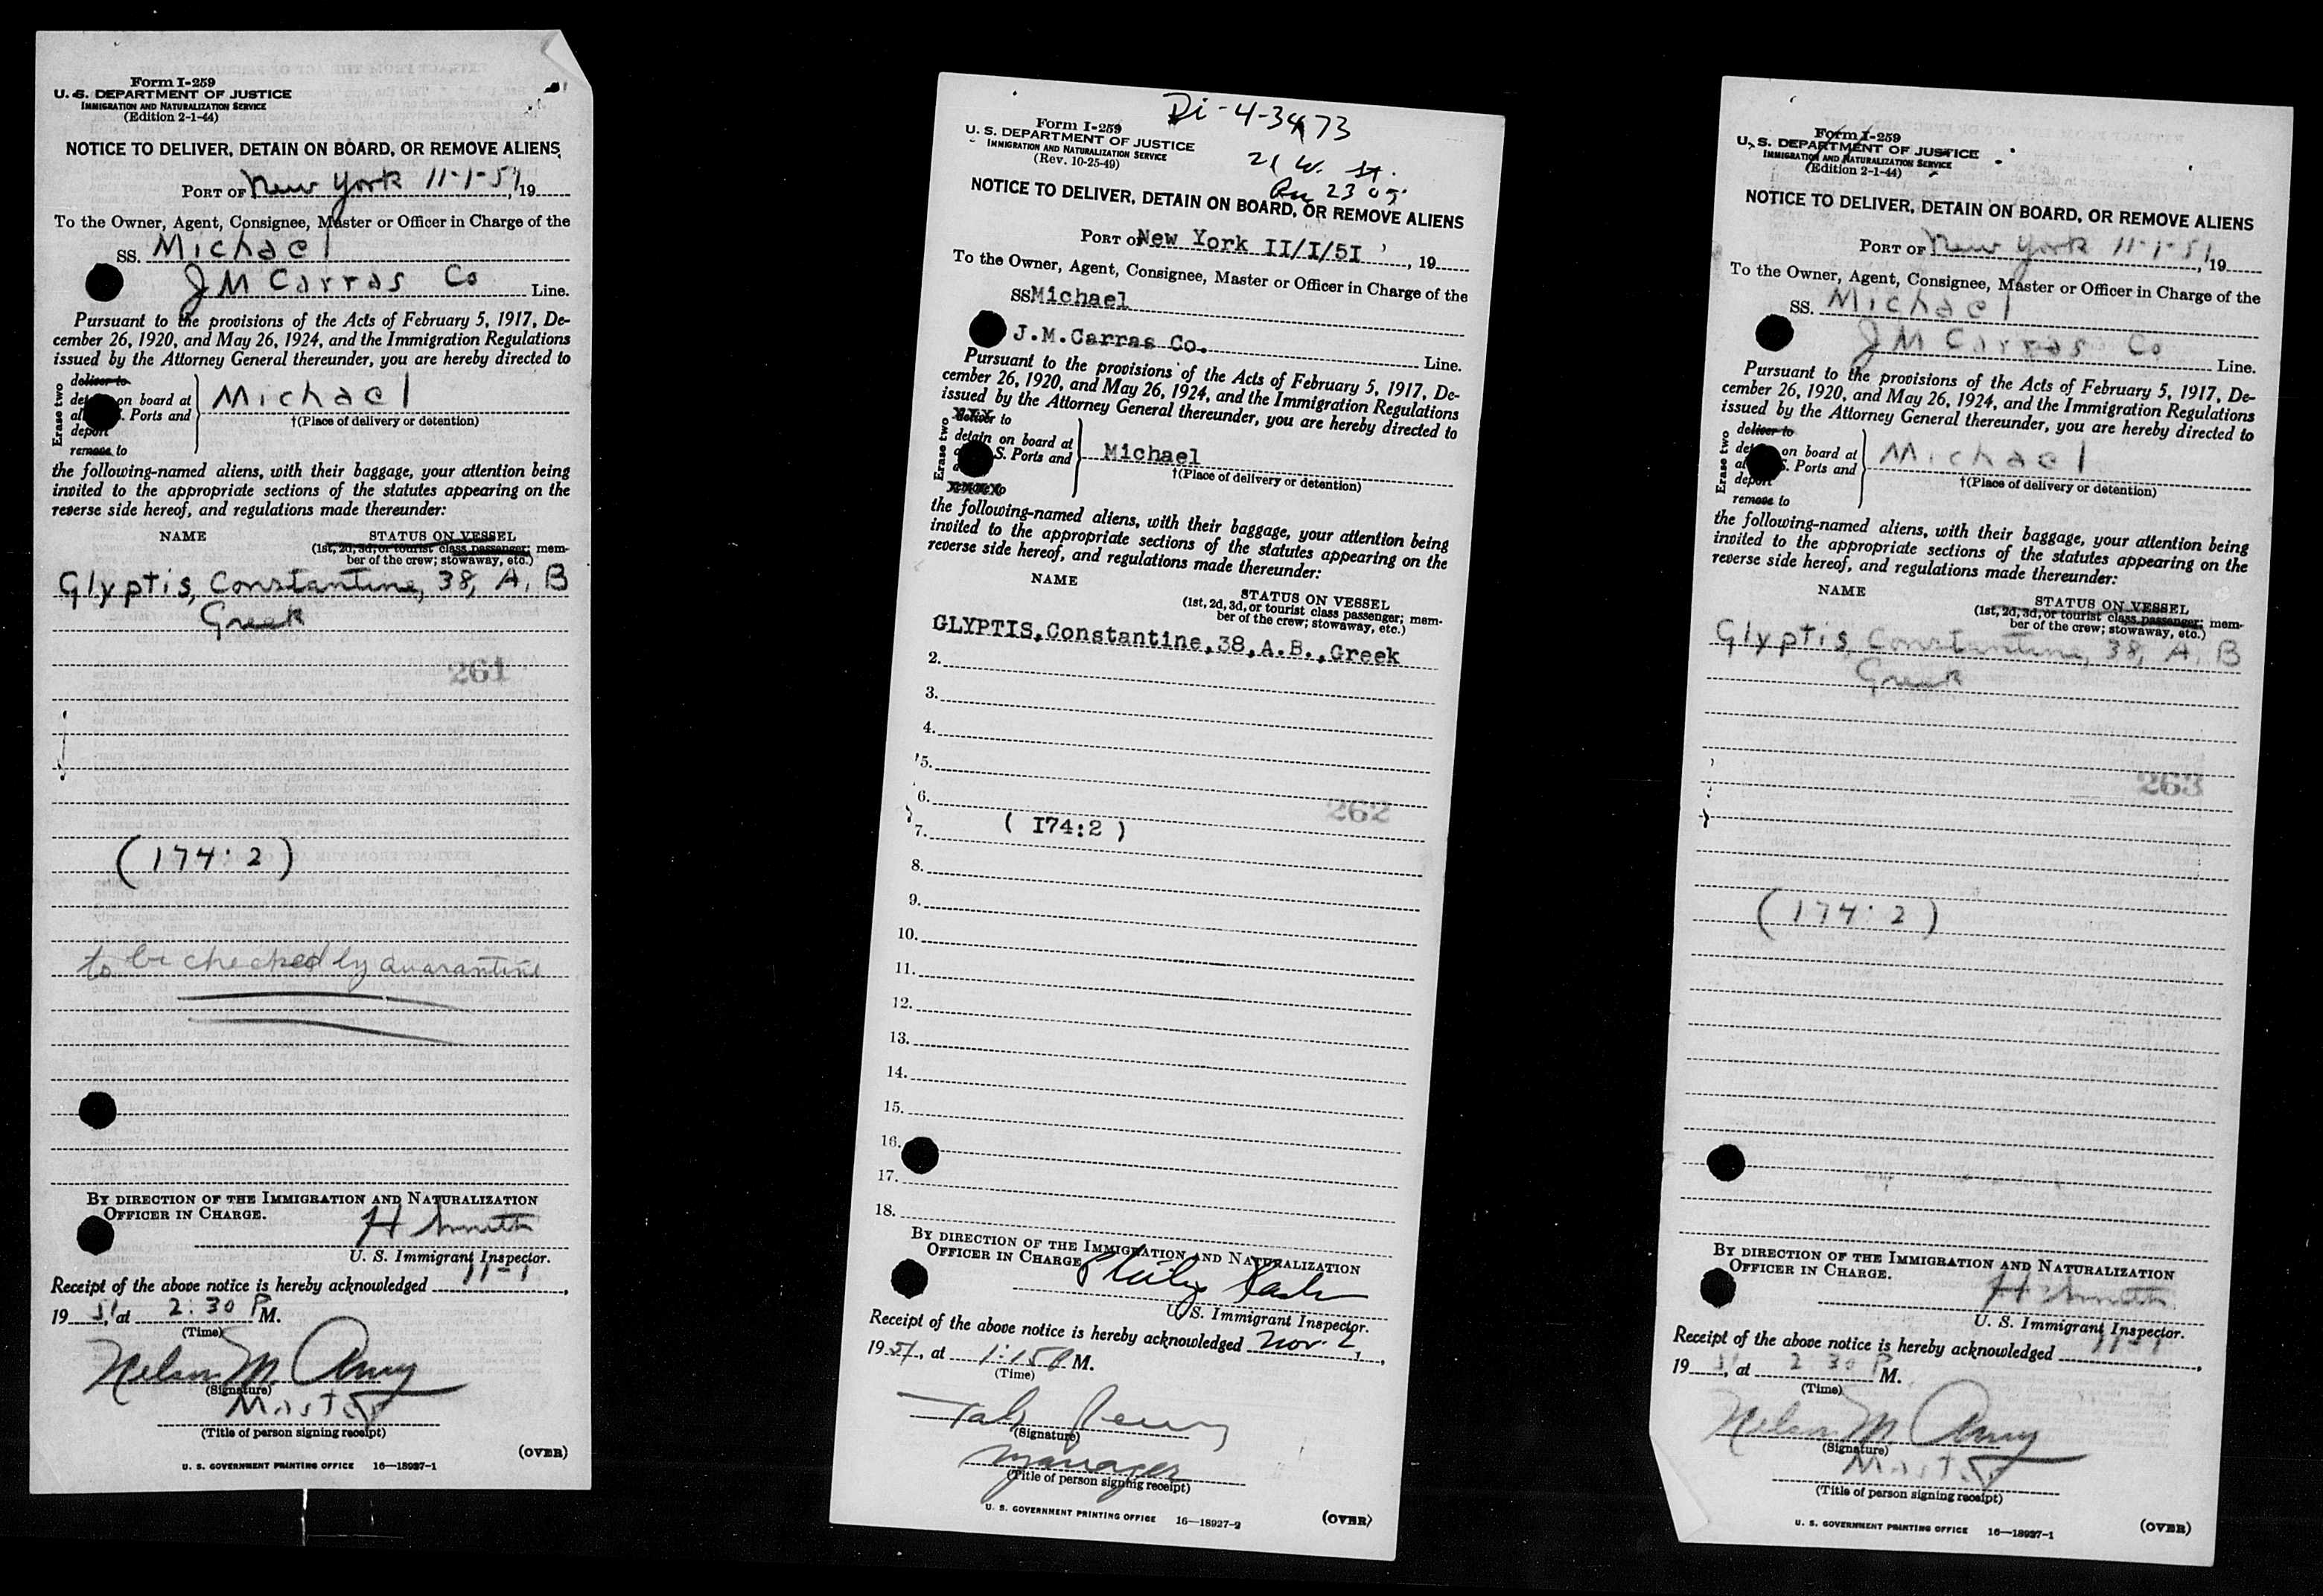 Form I-259
U. S. DEPARTMENT OF JUSTICE
IMMIGRATION AND NATURALIZATION SERVICE
(Edition 2-1-44)
NOTICE TO DELIVER, DETAIN ON BOARD, OR REMOVE ALIENS
PORT OF New York 11-1-51, 19
To the Owner, Agent, Consignee, Master or Officer in Charge of the
SS. Michael
J M Carras Co Line.
Pursuant to the provisions of the Acts of February 5, 1917, De-
cember 26, 1920, and May 26, 1924, and the Immigration Regulations
issued by the Attorney General thereunder, you are hereby directed to
Erase two
deliver to
on board at
Ports and
deport
remove to
Michael
†(Place of delivery or detention)
the following-named aliens, with their baggage, your attention being
invited to the appropriate sections of the statutes appearing on the
reverse side hereof, and regulations made thereunder:
NAME
STATUS ON VESSEL
(1st, 2d, 3d, or tourist class passenger; mem-
ber of the crew; stowaway, etc.)
Glyptis, Constantine, 38, A. B
Greek
261
(174:2)
to be checked by quarantine
BY DIRECTION OF THE IMMIGRATION AND NATURALIZATION
OFFICER IN CHARGE.
H Smith
U. S. Immigrant Inspector.
Receipt of the above notice is hereby acknowledged 11-1,
19 51, at 2:30 P M.
(Time)
Nelson M.
(Signature)
Master
(Title of person signing receipt)
(OVER)
U. S. GOVERNMENT PRINTING OFFICE 16—18927-1
Di-4-3473
Form I-259
U. S. DEPARTMENT OF JUSTICE
IMMIGRATION AND NATURALIZATION SERVICE
(Rev. 10-25-49)
21 W. St.
Rm 2305
NOTICE TO DELIVER, DETAIN ON BOARD, OR REMOVE ALIENS
PORT OF New York II/I/5I, 19
To the Owner, Agent, Consignee, Master or Officer in Charge of the
SS Michael
J.M.Carras Co. Line.
Pursuant to the provisions of the Acts of February 5, 1917, De-
cember 26, 1920, and May 26, 1924, and the Immigration Regulations
issued by the Attorney General thereunder, you are hereby directed to
Erase two
deliver to
detain on board at
S. Ports and
remove to
Michael
†(Place of delivery or detention)
the following-named aliens, with their baggage, your attention being
invited to the appropriate sections of the statutes appearing on the
reverse side hereof, and regulations made thereunder:
NAME
STATUS ON VESSEL
(1st, 2d, 3d, or tourist class passenger; mem-
ber of the crew; stowaway, etc.)
GLYPTIS,Constantine,38,A.B.,Greek
2.
3.
4.
5.
6.
262
7. ( I74:2 )
8.
9.
10.
11.
12.
13.
14.
15.
16.
17.
18.
BY DIRECTION OF THE IMMIGRATION AND NATURALIZATION
OFFICER IN CHARGE
Philip
U. S. Immigrant Inspector.
Receipt of the above notice is hereby acknowledged Nov. 2,
19 51, at 1:15 P M.
(Time)
(Signature)
Manager
(Title of person signing receipt)
U. S. GOVERNMENT PRINTING OFFICE 16—18927-2
(OVER)
Form I-259
U. S. DEPARTMENT OF JUSTICE
IMMIGRATION AND NATURALIZATION SERVICE
(Edition 2-1-44)
NOTICE TO DELIVER, DETAIN ON BOARD, OR REMOVE ALIENS
PORT OF New York 11-1-51, 19
To the Owner, Agent, Consignee, Master or Officer in Charge of the
SS. Michael
J M Carras Co Line.
Pursuant to the provisions of the Acts of February 5, 1917, De-
cember 26, 1920, and May 26, 1924, and the Immigration Regulations
issued by the Attorney General thereunder, you are hereby directed to
Erase two
deliver to
on board at
S. Ports and
deport
remove to
Michael
†(Place of delivery or detention)
the following-named aliens, with their baggage, your attention being
invited to the appropriate sections of the statutes appearing on the
reverse side hereof, and regulations made thereunder:
NAME
STATUS ON VESSEL
(1st, 2d, 3d, or tourist class passenger; mem-
ber of the crew; stowaway, etc.)
Glyptis, Constantine, 38, A. B
Greek
263
(174:2)
BY DIRECTION OF THE IMMIGRATION AND NATURALIZATION
OFFICER IN CHARGE.
H Smith
U. S. Immigrant Inspector.
Receipt of the above notice is hereby acknowledged 11-1,
19 51, at 2:30 P. M.
(Time)
Nelson M.
(Signature)
Master
(Title of person signing receipt)
U. S. GOVERNMENT PRINTING OFFICE 16—18927-1
(OVER)